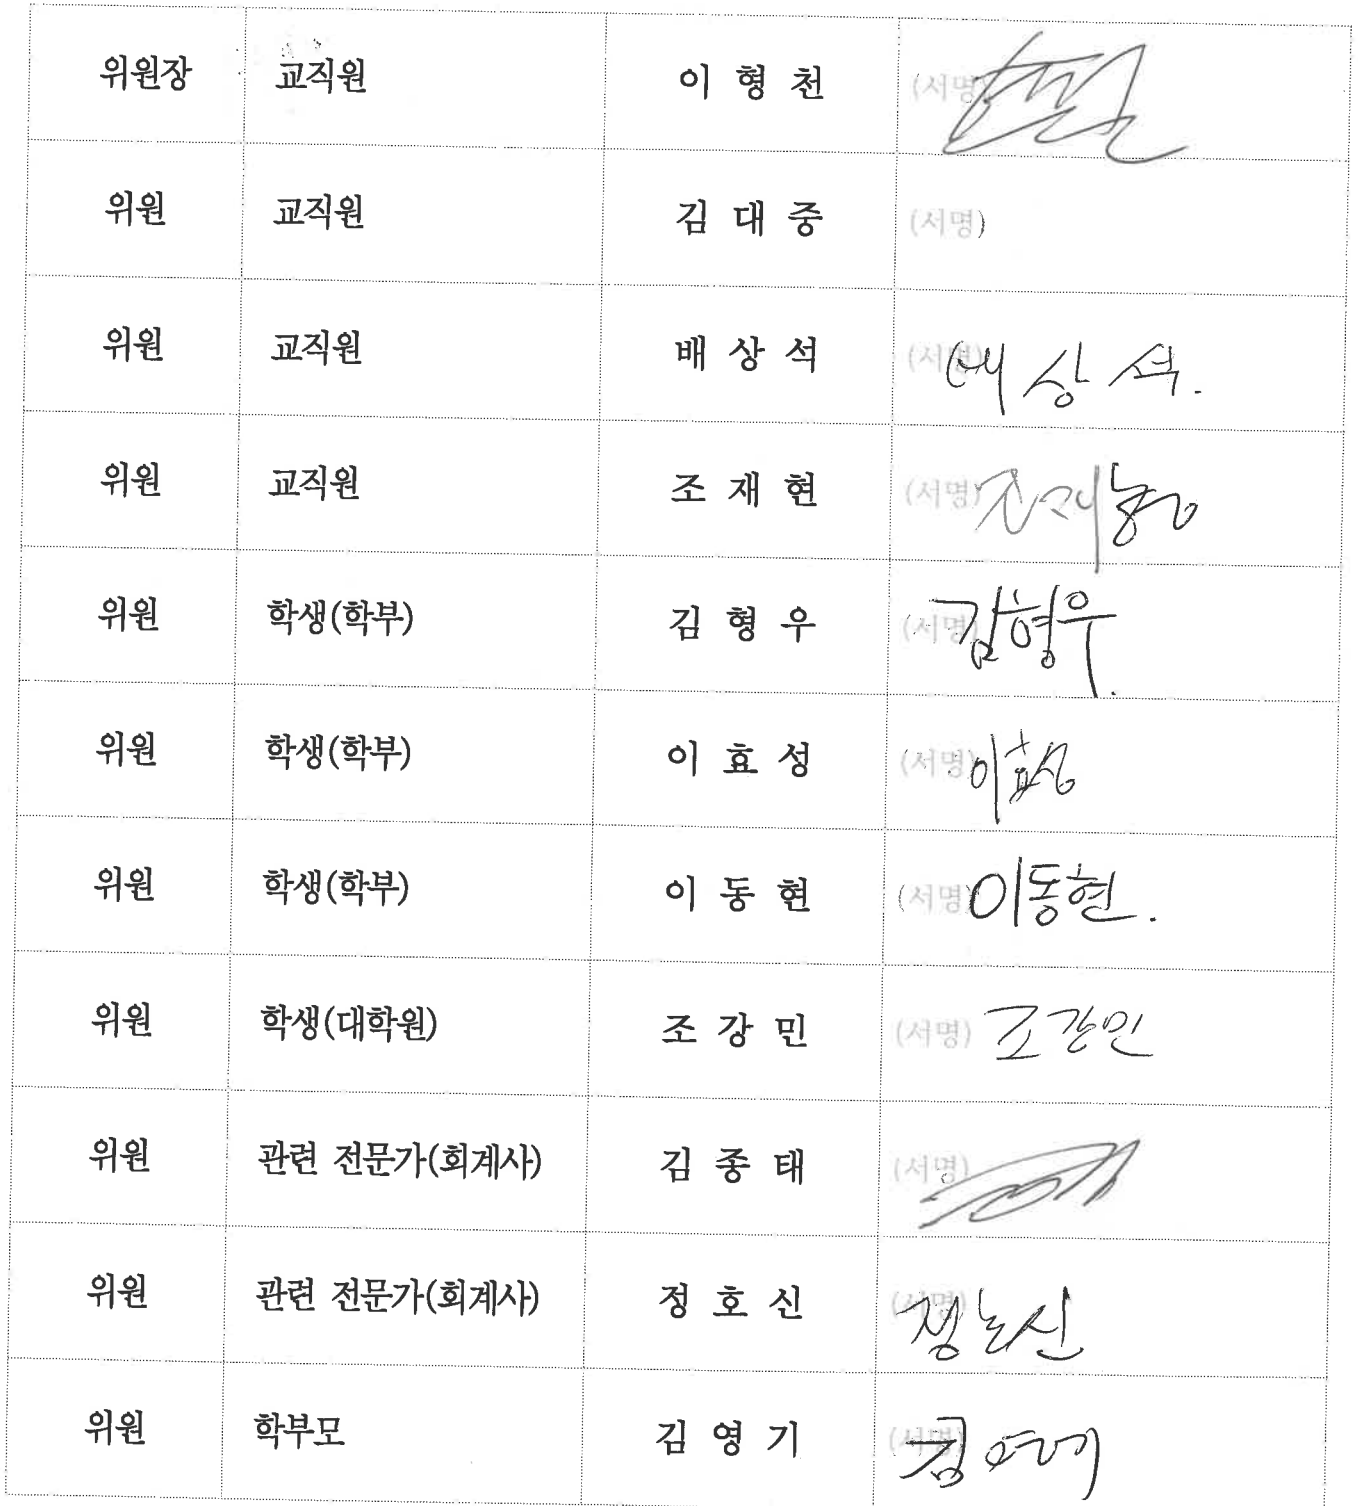 위원장 교직원 이 형 천 (서명)
위원 교직원 김 대 중 (서명)
위원 교직원 배 상 석 (서명) 배 상 석.
위원 교직원 조 재 현 (서명) 조재현
위원 학생(학부) 김 형 우 (서명) 김형우.
위원 학생(학부) 이 효 성 (서명) 이효성
위원 학생(학부) 이 동 현 (서명) 이동현.
위원 학생(대학원) 조 강 민 (서명) 조강민
위원 관련 전문가(회계사) 김 종 태 (서명)
위원 관련 전문가(회계사) 정 호 신 (서명) 정호신
위원 학부모 김 영 기 (서명) 김영기